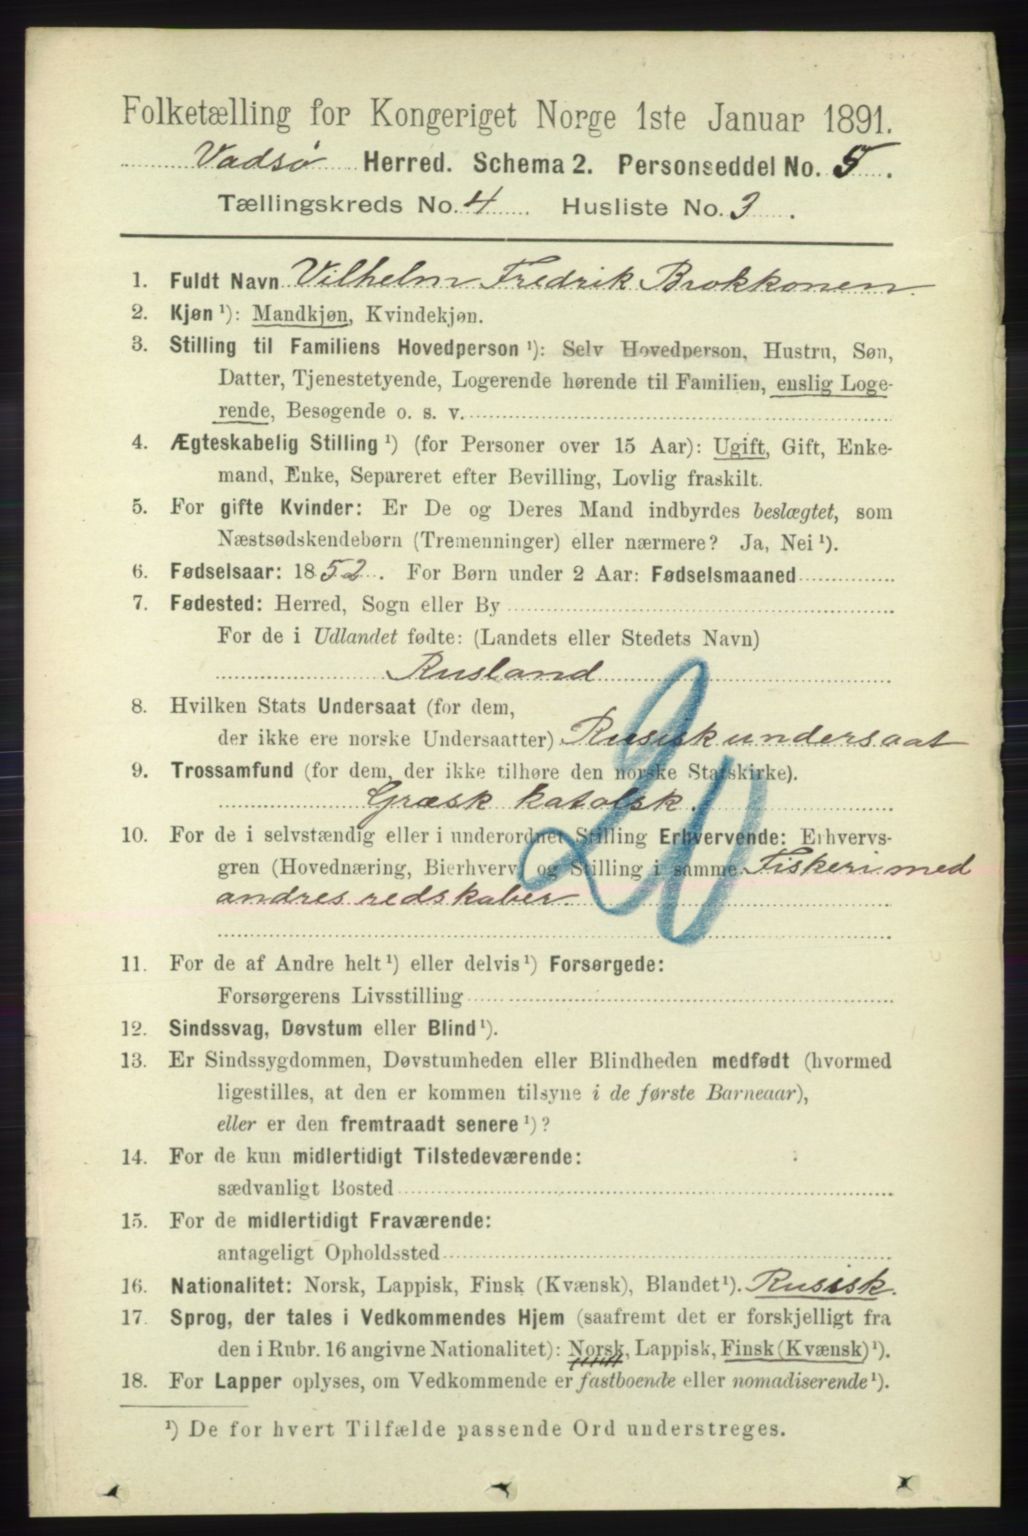 Folketælling for Kongeriget Norge 1ste Januar 1891.
Vadsø Herred. Schema 2. Personseddel No. 5.
Tællingskreds No. 4 Husliste No. 3.
1. Fuldt Navn Vilhelm Fredrik Brokkonen
2. Kjøn ¹): Mandkjøn, Kvindekjøn.
3. Stilling til Familiens Hovedperson ¹): Selv Hovedperson, Hustru, Søn,
Datter, Tjenestetyende, Logerende hørende til Familien, enslig Loge-
rende, Besøgende o. s. v.
4. Ægteskabelig Stilling ¹) (for Personer over 15 Aar): Ugift, Gift, Enke-
mand, Enke, Separeret efter Bevilling, Lovlig fraskilt.
5. For gifte Kvinder: Er De og Deres Mand indbyrdes beslægtet, som
Næstsødskendebørn (Tremenninger) eller nærmere? Ja, Nei ¹).
6. Fødselsaar: 1852. For Børn under 2 Aar: Fødselsmaaned
7. Fødested: Herred, Sogn eller By
For de i Udlandet fødte: (Landets eller Stedets Navn)
Rusland
8. Hvilken Stats Undersaat (for dem,
der ikke ere norske Undersaatter) Rusisk undersaat
9. Trossamfund (for dem, der ikke tilhøre den norske Statskirke).
Græsk katolsk.
10. For de i selvstændig eller i underordnet Stilling Erhvervende: Erhvervs-
gren (Hovednæring, Bierhverv) og Stilling i samme Fiskeri med
andres redskaber
20
11. For de af Andre helt ¹) eller delvis ¹) Forsørgede:
Forsørgerens Livsstilling
12. Sindssvag, Døvstum eller Blind ¹).
13. Er Sindssygdommen, Døvstumheden eller Blindheden medfødt (hvormed
ligestilles, at den er kommen tilsyne i de første Barneaar),
eller er den fremtraadt senere ¹)?
14. For de kun midlertidigt Tilstedeværende:
sædvanligt Bosted
15. For de midlertidigt Fraværende:
antageligt Opholdssted
16. Nationalitet: Norsk, Lappisk, Finsk (Kvænsk), Blandet ¹). Rusisk.
17. Sprog, der tales i Vedkommendes Hjem (saafremt det er forskjelligt fra
den i Rubr. 16 angivne Nationalitet): Norsk, Lappisk, Finsk (Kvænsk) ¹).
18. For Lapper oplyses, om Vedkommende er fastboende eller nomadiserende ¹).
¹) De for hvert Tilfælde passende Ord understreges.